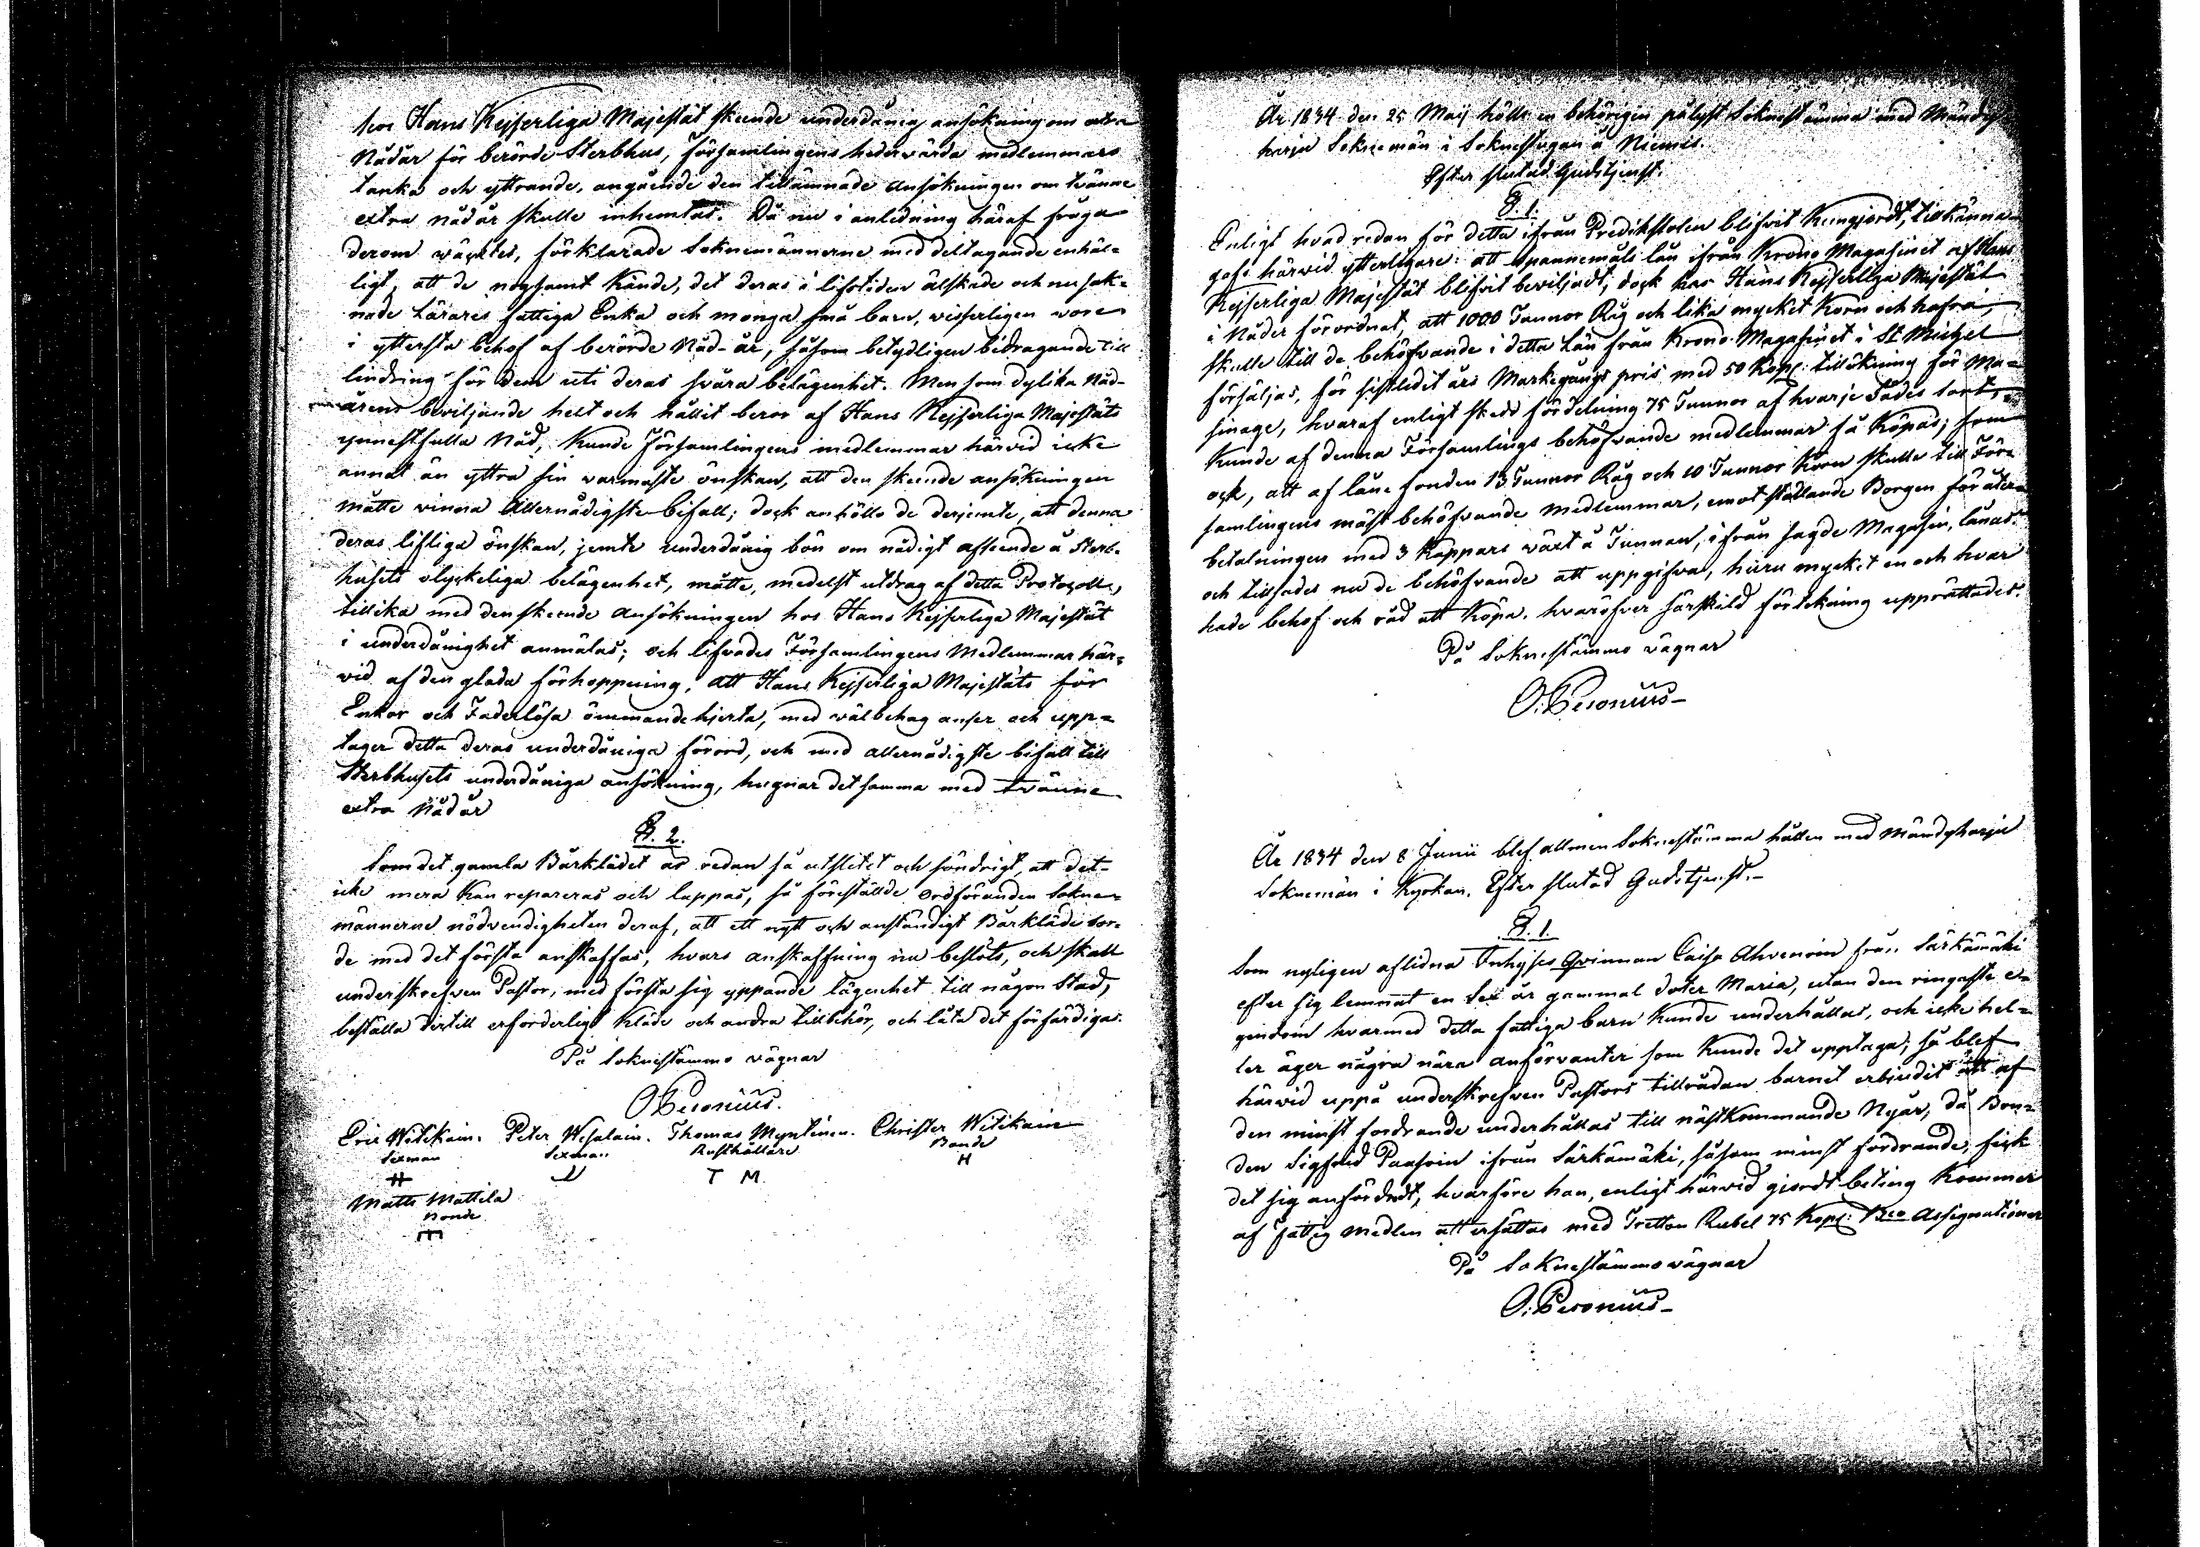 hos Hans Kejserliga Majestät skeende underdånig ansökning om extra
Nådår för berörde Sterbhus, Församlingens hedervärda medlemmars
tanka och yttrande, angående den tillämnade ansökningen om tvänne
extra nådår skulle inhemtas. Då nu i anledning häraf fråga
derom väcktes, förklarade Soknemännerne med deltagande enhäl-
ligt, att de nogsamt kände, det deras i lifstiden älskade och nu sak-
nade Lärares fattiga Enka och monga små barn, visserligen vore
i yttersta behof af berörde Nåd-år, såsom betydligen bidragande till
lindring för dem uti deras svåra belägenhet. Men som dylika Nåd-
årens beviljande helt och hållit beror af Hans Kejserliga Majestäts
ynnestfulla Nåd, kunde Församlingens medlemmar härvid icke
annat än yttra sin varmaste önskan, att den skeende ansökningen
måtte vinna Allernådigste bifall; dock anhöllo de derjemte, att denna
deras lifliga önskan, jemte underdånig bön om nådigt afseende å Sterb-
husets olyckeliga belägenhet, måtte, medelst utdrag af detta Protocoll,
tillika med den skeende ansökningen hos Hans Kejserliga Majestät
i underdånighet anmälas; och lifvades Församlingens Medlemmar här-
vid af den glada förhoppning, att Hans Kejserliga Majestäts för
Enkor och Faderlösa ömmande hjerta, med välbehag anser och upp-
tager detta deras underdåniga förord, och med allernådigste bifall till
Sterbhusets underdåniga ansökning, hugnar det samma med tvänne
extra Nådår
§. 2.
Som det gamla Bårklädet är redan så utslitet och söndrigt, att det
icke mera kan repareras och lappas, så föreställde ordföranden Sokne-
männerne nödvendigheten deraf, att ett nytt och anständigt Bårkläde bor-
de med det första anskaffas, hvars anskaffning nu beslöts, och skall
underskrefven Pastor, med första sig yppande lägenhet till någon Stad,
beställa dertill erforderligt kläde och andra tillbehör, och låta det förfärdiga.
På Soknestämmo vägnar
O. Peronius.
Eric Witikain. Peter Wesalain. Thomas Myntinen. Christer Witikain
Sexman Sexman Rusthållare Bonde
H T M. H
Matts Mattila
Bonde
År 1834 den 25 Maij hölls en behörigen pålyst Soknestämma med Mändy
harju Soknemän i Soknestugan å Niemis.
Efter slutad Gudstjenst.
§. 1.
Enligt hvad redan för detta ifrån Predikstolen blifvit kungjordt, tillkänna
gafs härvid ytterligare: att spannemåls lån ifrån Krono Magasinet af Hans
Kejserliga Majestät blifvit beviljadt, dock har Hans Kejserliga Majestät
i Nåder förordnat, att 1000 Tunnor Råg och lika mycket Korn och hafra,
skulle till de behöfvande i detta Län från Krono-Magasinet i St Michel
försäljas, för sistledit års Markegångs pris med 50 Kop: tillökning för Ma-
sinage, hvaraf enligt skedd fördelning 75 Tunnor af hvarje Sädes sort,
kunde af denna Församlings behöfvande medlemmar få köpas; som
ock, att af låne fonden 13 Tunnor Råg och 10 Tunnor Korn skulle till För-
samlingens mäst behöfvande medlemmar, emot ställande Borgen för åter-
betalningen med 3 Kappars växt å Tunnan, ifrån sagde Magasin, lånas.
och tillsades nu de behöfvande att uppgifva, huru mycket en och hvar
hade behof och råd att köpa, hvaröfver särskild förtekning upprättades.
På Soknestämmo vägnar
O. Peronius
År 1834 den 8 Junii blef allmen Soknestämma hållen med Mändyharju
Soknemän i Kyrkan. Efter slutad Gudstjenst.
§. 1.
Som nyligen aflidna Inhyses Qvinnan Caisa Ahvenoin från Särkämäki
efter sig lemnat en sex år gammal doter Maria, utan den ringaste e-
gendom hvarmed detta fattiga barn kunde underhållas, och icke hel-
ler äger några nära anförvanter som kunde det upptaga; så blef
härvid uppå underskrefven Pastors tillrådan barnet erbjudit att af
den minst fordrande underhållas till nästkommande Nyår, då Bon-
den Sigfred Paasoin ifrån Särkämäki, såsom minst fordrande, fick
det sig anförtrodt, hvarföre han, enligt härvid gjordt beting kommer
af Fattig medlen att ersättas med Tretton Rubel 75 Kop: Bco Assignationer
På Soknestämmo vägnar
O. Peronius